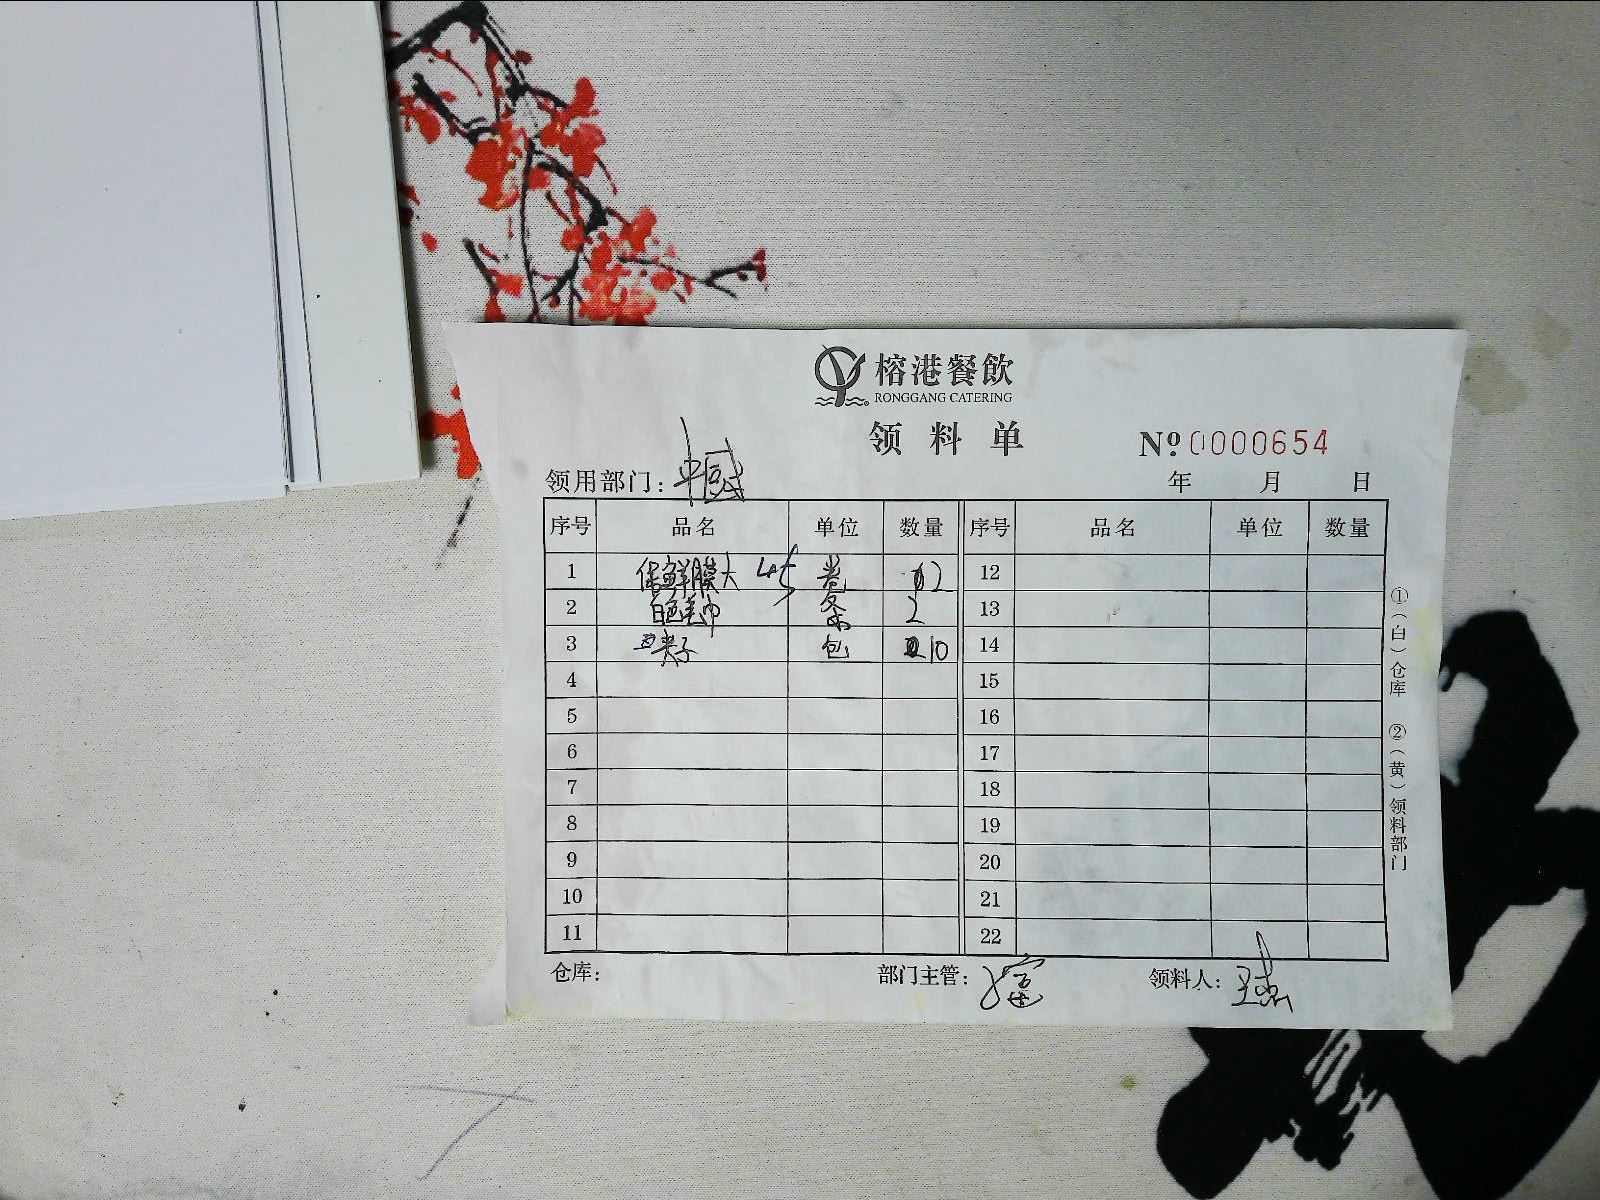 榕港餐飲
RONGGANG CATERING
领料单
№ 0000654
领用部门：中国城
年 月 日
序号 品名 单位 数量 序号 品名 单位 数量
1 保鲜膜大 45 卷 2 12
2 白色毛巾 条 2 13
3 夹子 包 10 14
4 15
5 16
6 17
7 18
8 19
9 20
10 21
11 22
仓库： 部门主管： 领料人：
①（白）仓库 ②（黄）领料部门